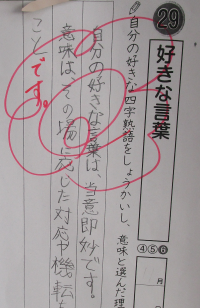 29
好きな言葉
④⑤⑥
月
自分の好きな四字熟語をしょうかいし、意味と選んだ理
自分の好きな言葉は、当意即妙です。
意味は、その場に応じた対応や機転を
ことです。